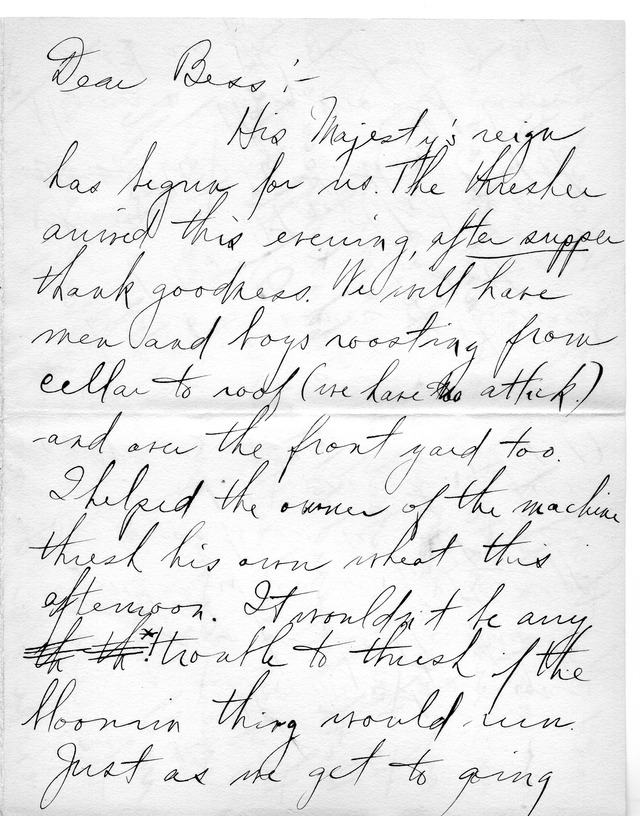 Dear Bess :-
His Majesty's reign
has begun for us. The thresher
arrived this evening, after supper
thank goodness. We will have
men and boys roosting from
cellar to roof (we have no attick.)
and over the front yard too.
I helped the owner of the machine
thresh his own wheat this
afternoon. It wouldn't be any
th th*! trouble to thresh if the
bloomin thing would run.
Just as we get to going